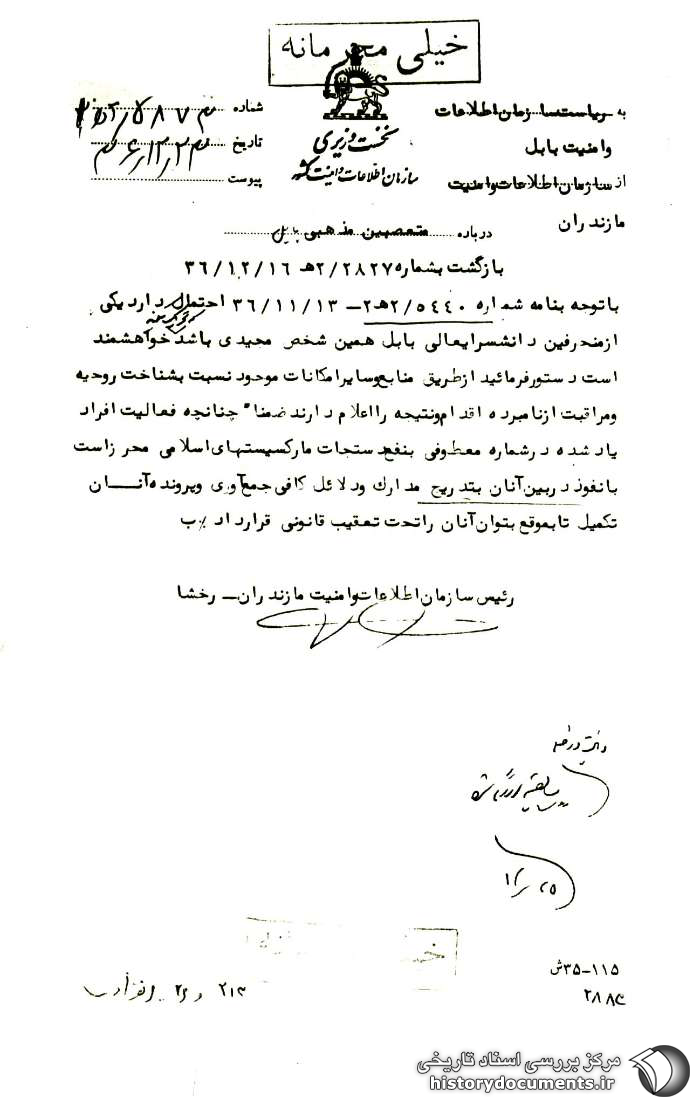 خیلی محرمانه
به ریاست سازمان اطلاعات
وامنیت بابل
از سازمان اطلاعات وامنیت
مازندران
نخست وزیری
سازمان اطلاعات و امنیت کشور
شماره
تاریخ ۳۶/۱۲/۲۳
پیوست
درباره متعصبین مذهبی بابل
بازگشت بشماره ۲/۲۸۲۷هـ ۳۶/۱۲/۱۶
باتوجه بنامه شماره ۲/۵٤٤۰هـ۲ــ ۳۶/۱۱/۱۳ احتمال دارد یکی
ازمنحرفین دانشسرایعالی بابل همین شخص مجیدی باشد خواهشمند
است دستورفرمائید ازطریق منابع وسایرامکانات موجود نسبت بشناخت روحیه
ومراقبت ازنامبرده اقدام ونتیجه رااعلام دارند ضمنا" چنانچه فعالیت افراد
یاد شده درشماره معطوفی بنفع دستجات مارکسیستهای اسلامی محرزاست
بانفوذ دربین آنان بتدریج مدارك ودلائل کافی جمع آوری وپرونده آنــــان
تکمیل تابموقع بتوان آنان راتحت تعقیب قانونی قرارداد ب
رئیس سازمان اطلاعات وامنیت مازندران ــ رخشا
۱۱۵-۳۵ش
مرکز بررسی اسناد تاریخی
historydocuments.ir